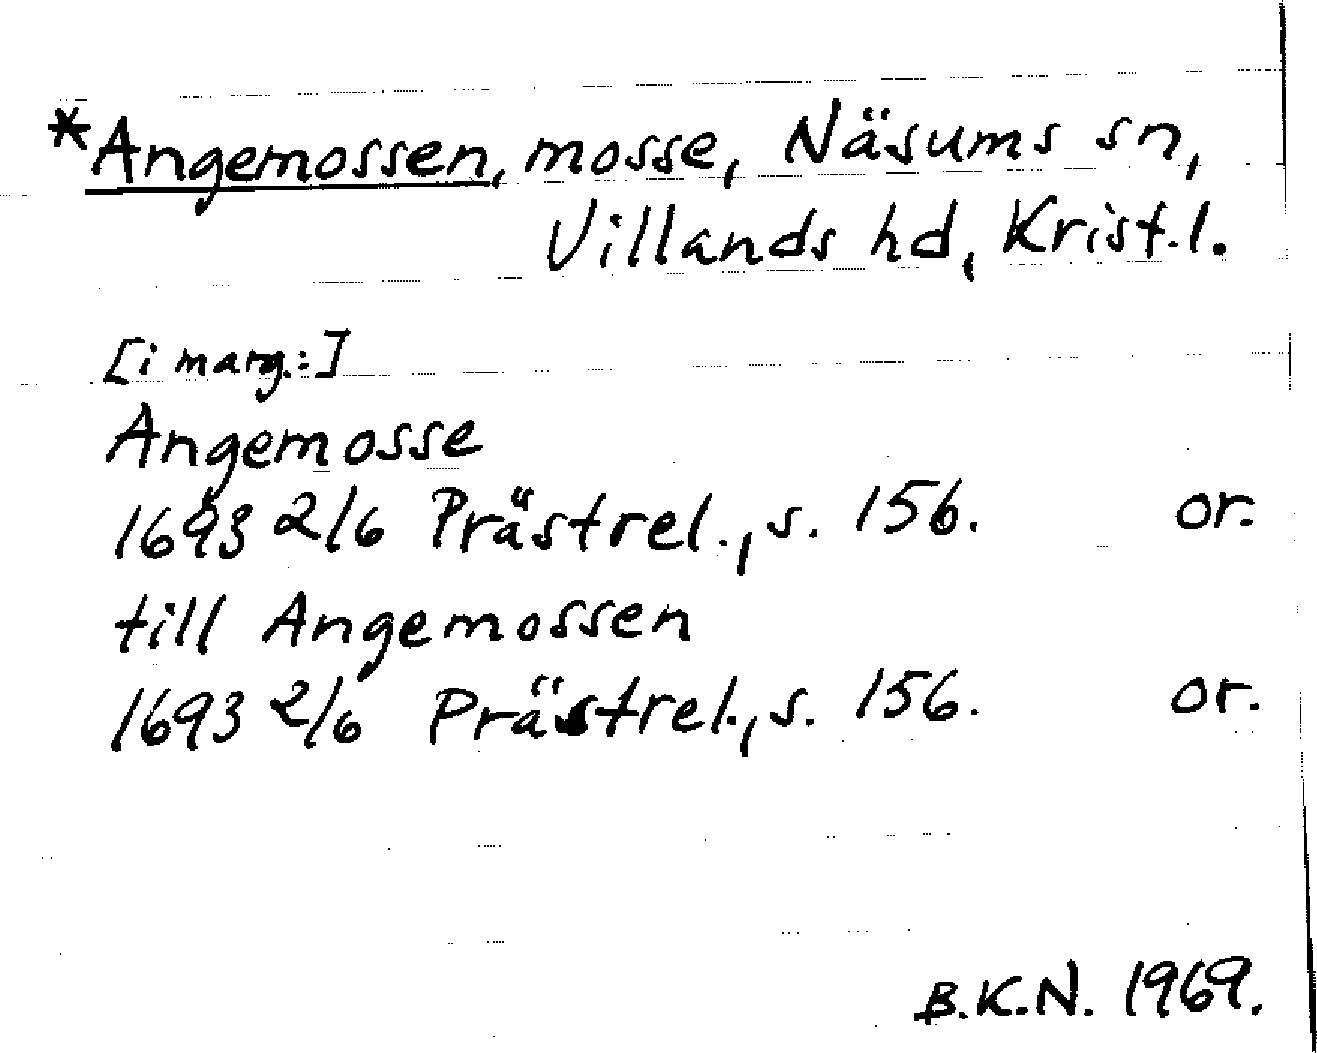 *Angemossen, mosse, Näsums sn,
Villands hd, Krist.l.
[i marg.:]
Angemosse
1693 2/6 Prästrel., s. 156. or.
till Angemossen
1693 2/6 Prästrel., s. 156. or.
B.K.N. 1969.